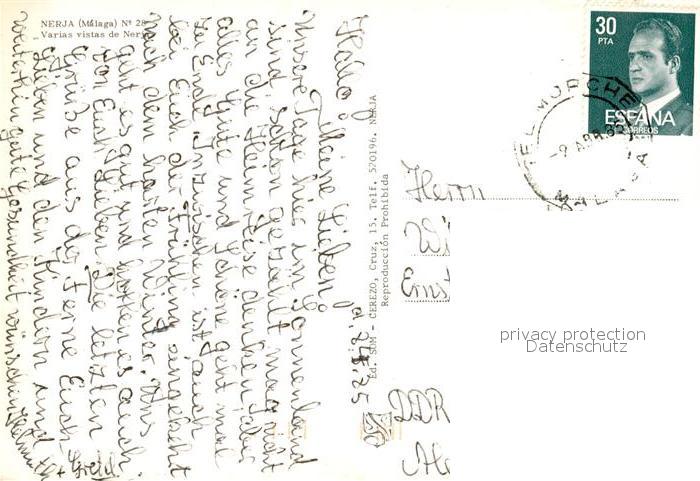 NERJA (Málaga) Nº 28
Varias vistas de Nerja
Hallo!
Meine Lieben!
Unsere Tage hier im Sonnenland
sind schon gezählt, mag nicht
an die Heimreise denken, aber
alles Gute und Schöne geht mal
zu Ende. Inzwischen ist auch
bei Euch der Frühling eingekehrt
nach dem harten Winter. Uns
geht es gut und hoffen es auch
von Euch Lieben. Die letzten
Grüße aus der Ferne Euch
Lieben und den Kindern und
weiterhin gute Gesundheit wünschen Helmuth + Gretel
Ed. SUM - CEREZO, Cruz, 15. Telf. 520196. NERJA
Reproducción Prohibida
30
PTA
ESPAÑA
CORREOS
EL MORCHE
MALAGA
Herrn
Wi
Ernst
DDR
privacy protection
Datenschutz